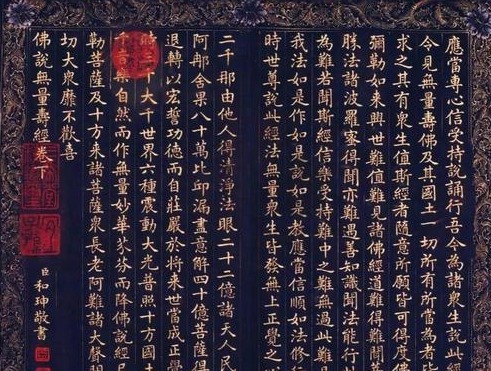 應當專心信受持說誦行吾今為諸眾生說此經
令見無量壽佛及其國土一切所有所當為者皆
求之其有眾生值斯經者隨意所願皆可得度佛
彌勒如來興世難值難見諸佛經道難得難聞菩
勝法諸波羅蜜得聞亦難遇善知識聞法能行此
為難若聞斯經信樂受持難中之難無過此難是
我法如是作如是說如是教應當信順如法修行
時世尊說此經法無量眾生皆發無上正覺之
二千那由他人得清淨法眼二十二億諸天人民
阿那含果八十萬比邱漏盡意解四十億菩薩得
退轉以宏誓功德而自莊嚴於將來世當成正覺
時三千大千世界六種震動大光普照十方國土
千音樂自然而作無量妙華芬而降佛說經已
勒菩薩及十方來諸菩薩眾長老阿難諸大聲聞
切大眾靡不歡喜
佛說無量壽經卷下
臣和珅敬書